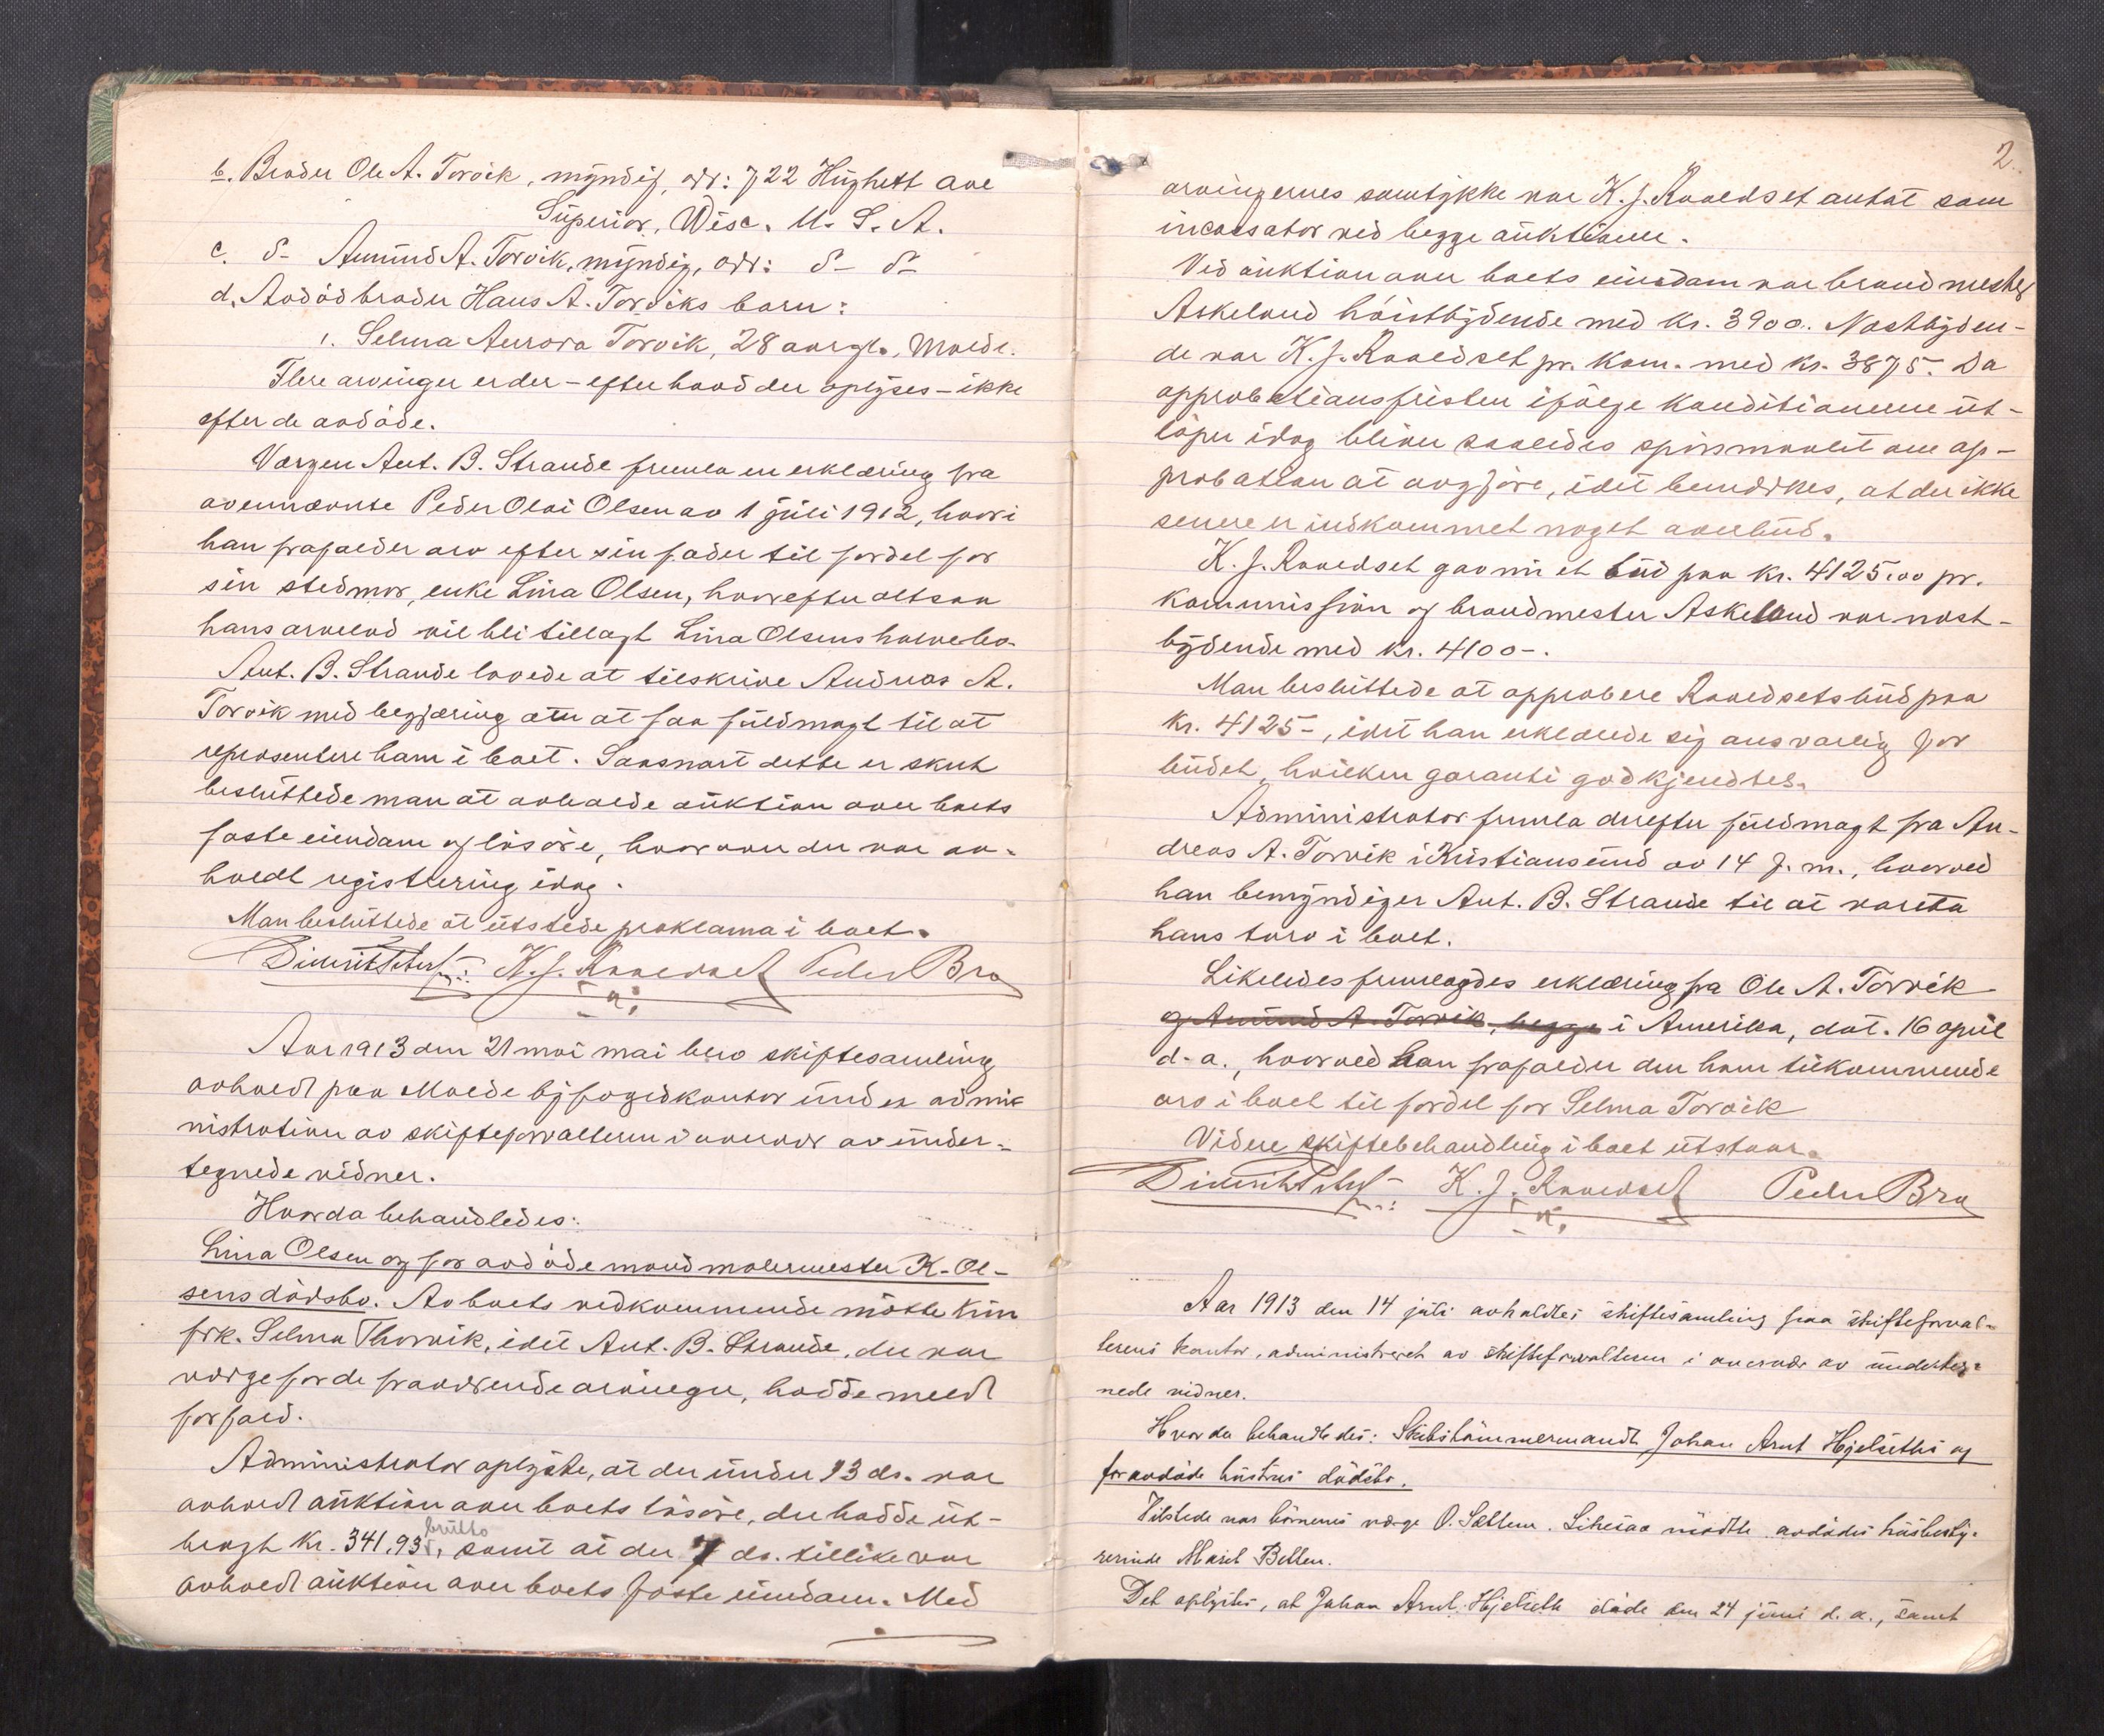 b. Broder Ole A. Torvik, myndig, adr: 722 Hughett ave
Superior, Wisc. U. S. A.
c. d- Amund A. Torvik, myndig, adr: d- d-
d. Avdød broder Hans A. Torviks barn:
1. Selma Aurora Torvik, 28 aar gl., Molde.
Flere arvinger er der - efter hvad der oplyses - ikke
efter de avdøde.
Vergen Ant. B. Strande fremla en erklæring fra
ovennævnte Peder Olai Olsen av 1 juli 1912, hvori
han frafalder arv efter sin fader til fordel for
sin stedmor, enke Lina Olsen, hvorefter altsaa
hans arvelod vil bli tillagt Lina Olsens halve bo.
Ant. B. Strande lovede at tilskrive Andreas A.
Torvik med begjæring om at faa fuldmagt til at
repræsentere ham i boet. Saasnart dette er skeet
besluttede man at avholde auktion over boets
faste eiendom og løsøre, hvorover der var av-
holdt registrering idag.
Man besluttede at utstede proklama i boet.
K. J. Raaedset Peder Bra
Aar 1913 den 21 mai mai blev skiftesamling
avholdt paa Molde byfogedkontor under admi-
nistration av skifteforvalteren i overvær av under-
tegnede vidner.
Hvorda behandledes:
Lina Olsen og før avdøde mand malermester K. Ol-
sens dødsbo. Av boets vedkommende møtte kun
frk. Selma Thorvik, idet Ant. B. Strande, der var
værge for de fraværende arvinger, hadde meldt
forfald.
Administrator oplyste, at der under 13 ds. var
avholdt auktion over boets løsøre, der hadde ut-
bragt kr. 341,93 brutto, samt at der 7 ds. tillike var
avholdt auktion over boets faste eiendom. Med
2.
arvingernes samtykke var K. J. Raaedset antat som
incassator ved begge auktioner.
Ved auktion over boets eiendom var brandmester
Askeland høistbydende med kr. 3900. Næstbyden-
de var K. J. Raaedset pr. kom. med kr. 3875.- Da
approbationsfristen ifølge konditionerne ut-
løper idag bliver saaledes spørsmaalet om ap-
probation at avgjøre, idet bemerkes, at der ikke
senere er indkommet noget overbud.
K. J. Raaedset gav nu et bud paa kr. 4125.00 pr.
kommission og brandmester Askeland var næst-
bydende med kr. 4100-.
Man besluttede at approbere Raaedsets bud paa
kr. 4125-, idet han erklærede sig ansvarlig for
budet, hvilken garanti godkjendtes.
Administrator fremla derefter fuldmagt fra An-
dreas A. Torvik i Kristiansund av 14 f. m., hvorved
han bemyndiger Ant. B. Strande til at vareta
hans tarv i boet.
Likeledes fremlagdes erklæring fra Ole A. Torvik
og Amund A. Torvik, begge i Amerika, dat. 16 april
d. a., hvorved han frafalder den ham tilkommende
arv i boet til fordel for Selma Torvik
Videre skiftebehandling i boet utstaar.
K. J. Raaedset Peder Bra
Aar 1913 den 14 juli avholdtes skiftesamling paa skifteforval-
terens kontor, administreret av skifteforvalteren i overvær av underteg-
nede vidner.
Hvorda behandledes: Skibstømmermand Johan Arnt Hjelseths og
før avdøde hustrus dødsbo.
Tilstede var børnenes værge O. Sættem. Likesaa mødte avdødes husbesty-
rerinde Marit Bollen.
Det oplystes, at Johan Arnt Hjelseth døde den 24 juni d. a., samt